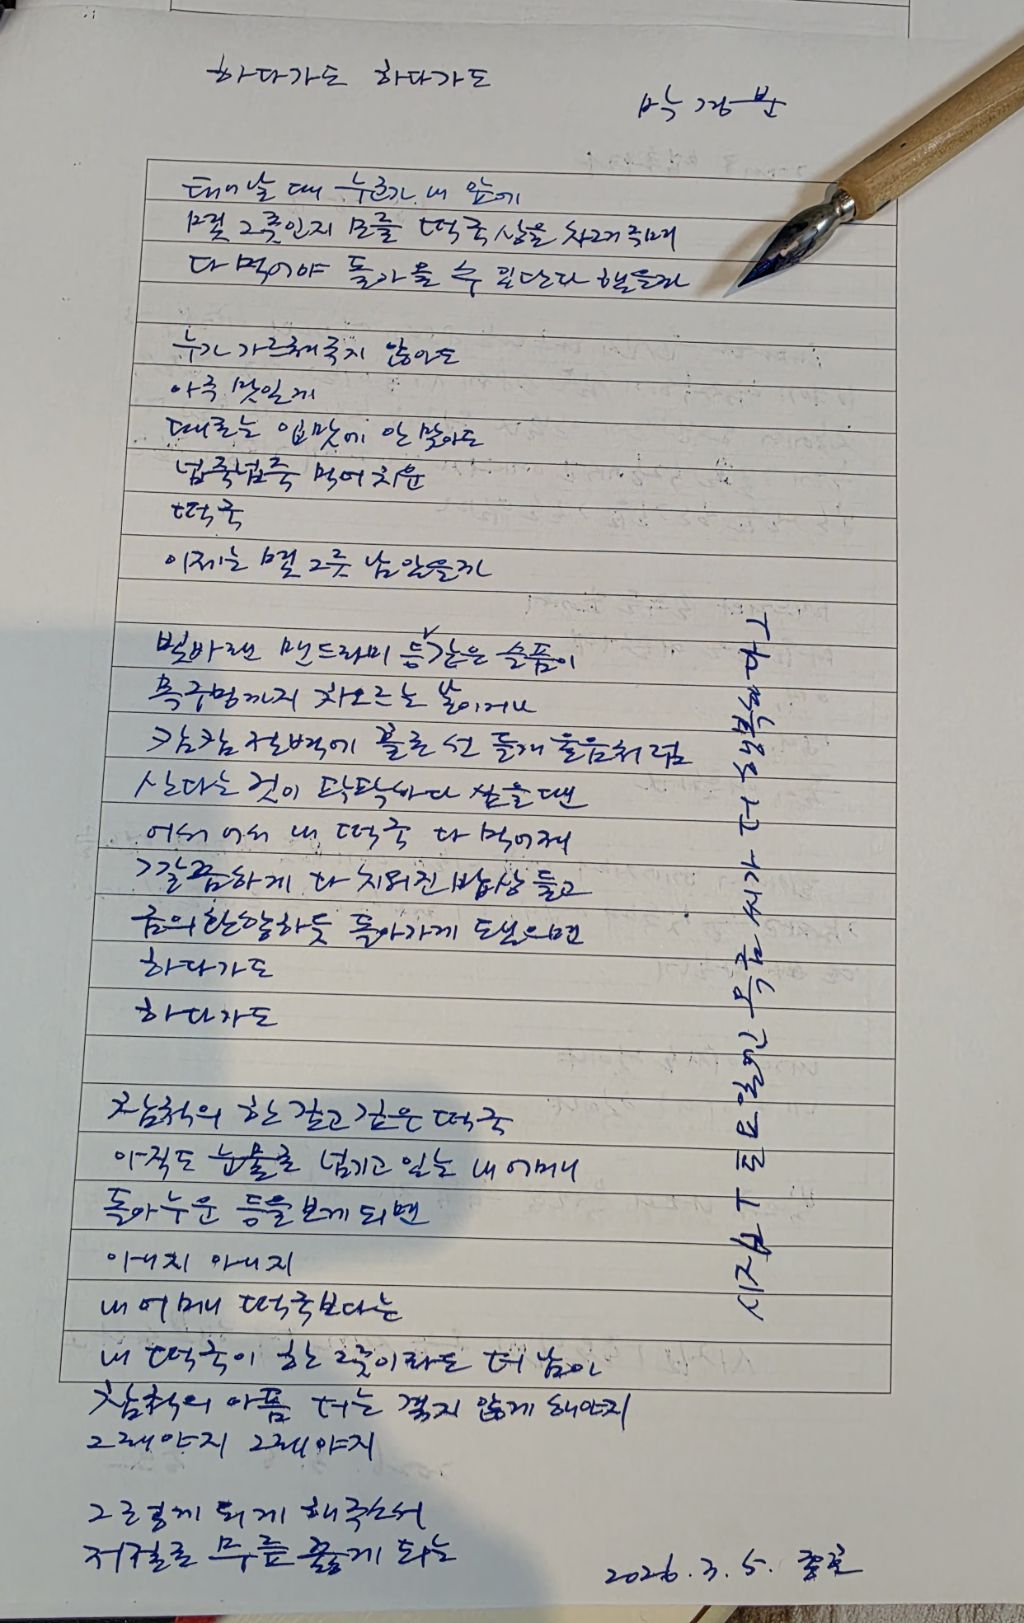 하다가도 하다가도
박경분
태어날 때 누군가 내 앞에
몇 그릇인지 모를 떡국상을 차려주며
다 먹어야 돌아올 수 있단다 했을까
누가 가르쳐주지 않아도
아주 맛있게
때로는 입맛에 안 맞아도
넙죽넙죽 먹어치운
떡국
이제는 몇 그릇 남았을까
빛바랜 맨드라미 등같은 슬픔이
목구멍까지 차오르는 날이거나
캄캄 절벽에 홀로 선 들개 울음처럼
산다는 것이 팍팍하다 싶을 땐
어서 어서 내 떡국 다 먹어져
깔끔하게 다 치워진 밥상 들고
금의환향하듯 돌아가게 되었으면
하다가도
하다가도
참척의 한 길고 깊은 떡국
아직도 눈물로 넘기고 있는 내 어머니
돌아누운 등을 보게 되면
아니지 아니지
내 어머니 떡국보다는
내 떡국이 한 그릇이라도 더 남아
참척의 아픔 더는 겪지 않게 해야지
그래야지 그래야지
그렇게 되게 해주소서
저절로 무릎 꿇게 되는
2026. 3. 5.
시집 T 토요일엔 목금 씨가 더 행복하다